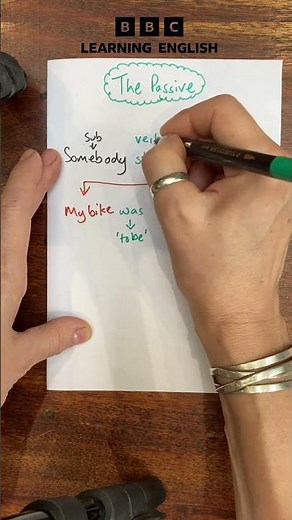 BBC
LEARNING ENGLISH
The Passive
Sub
Somebody
My bike was
'to be'